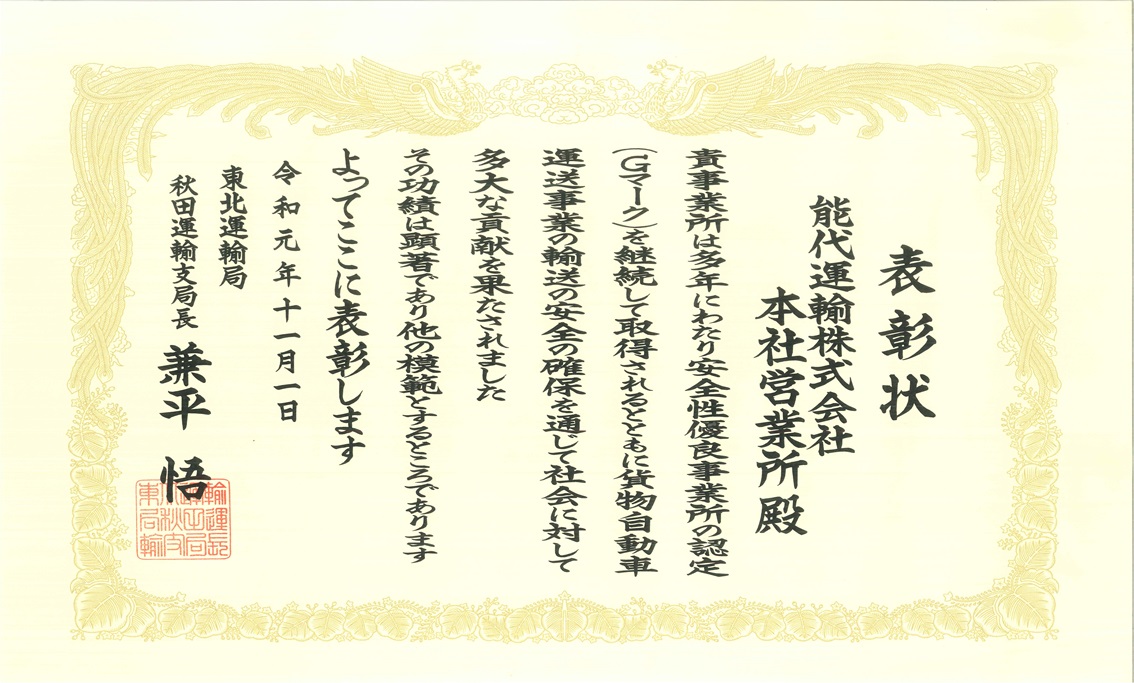 表彰状
能代運輸株式会社
本社営業所殿
貴事業所は多年にわたり安全性優良事業所の認定
(Gマーク)を継続して取得されるとともに貨物自動車
運送事業の輸送の安全の確保を通じて社会に対して
多大な貢献を果たされました
その功績は顕著であり他の模範とするところであります
よってここに表彰します
令和元年十一月一日
東北運輸局
秋田運輸支局長 兼平 悟